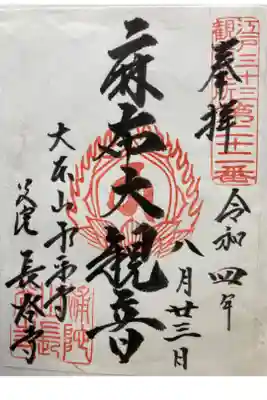 江戸三十三
観音札所第二十二番
奉拝
令和四年
八月廿三日
麻布大観音
大本山永平寺
別院
長谷寺